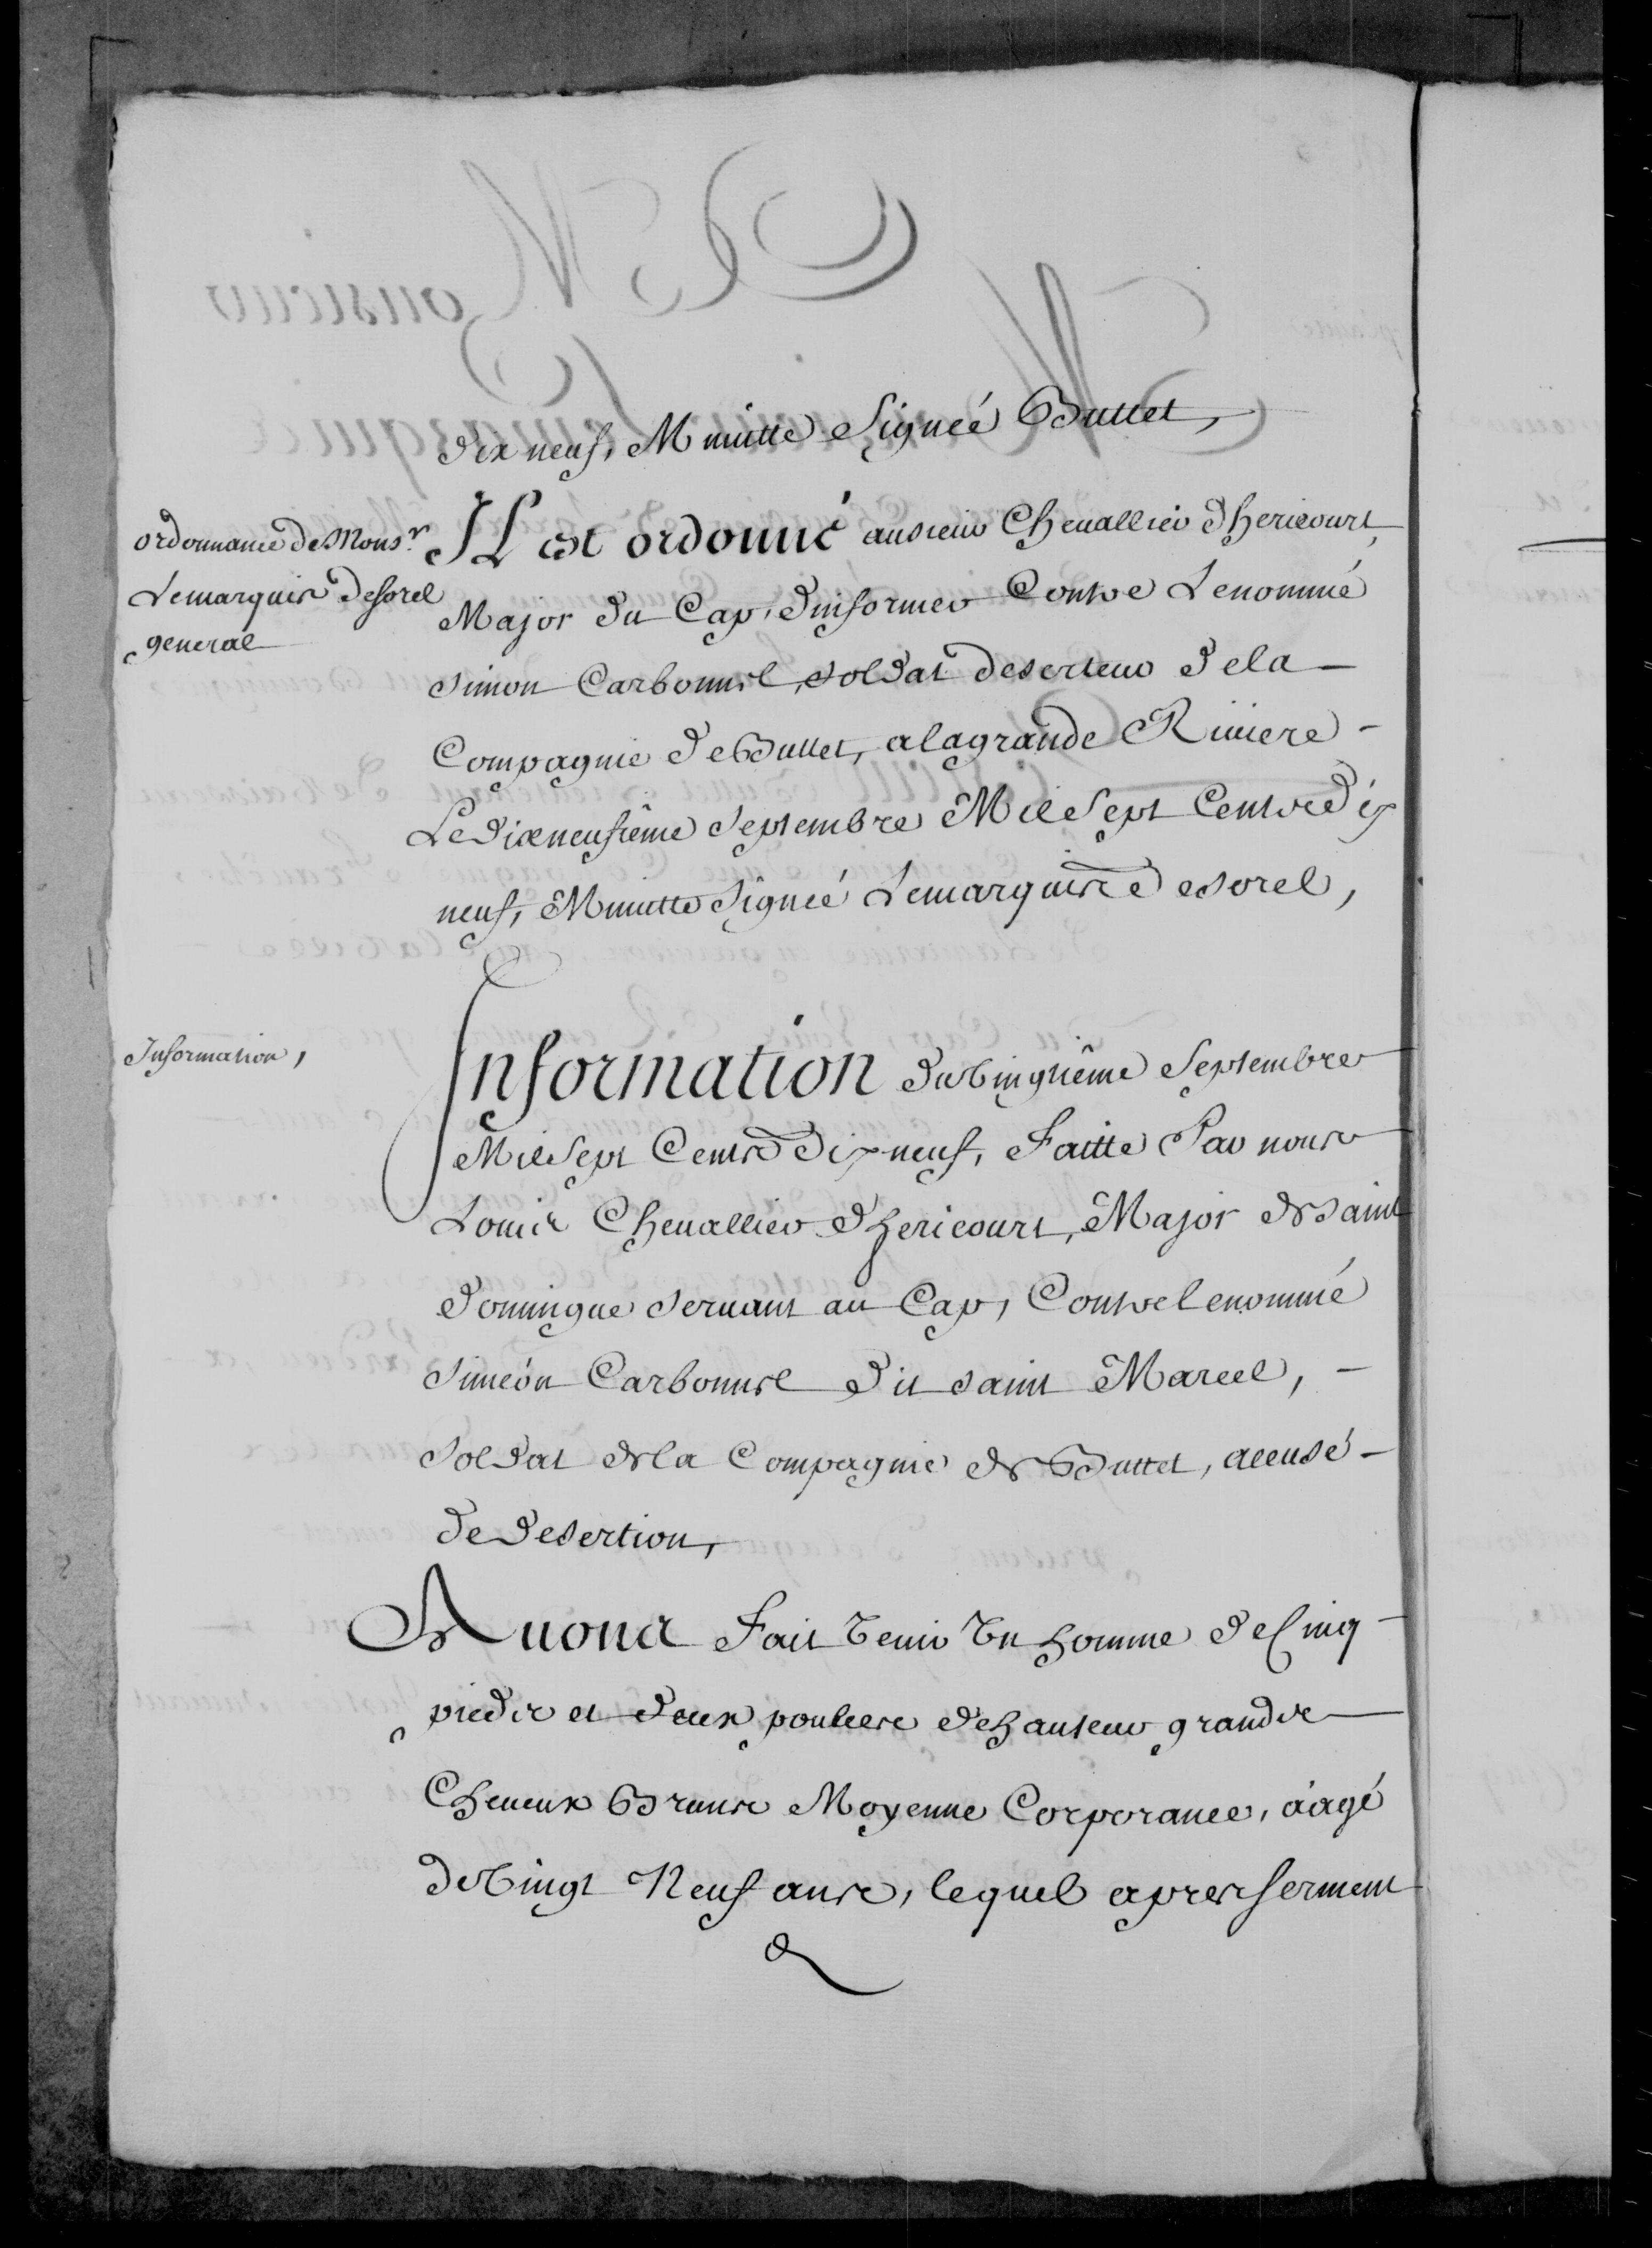 dix neuf, Minutte Signeé Buttet,
ordonnance de Mons.r
Lemarquis desorel
general
IL est ordonné ausieur Chevallier dhericourt,
Major du Cap, dinformer Contre Lenommé
simon Carbonnel, soldat deserteur dela
Compagnie deButtet, alagrande Riviere
Ledixneufiême septembre Mil Sept Cents dix
neuf, Minutte Signeé Lemarquis desorel,
Information,
Information duVingtiême Septembre
Mil Sept Cents dix neuf, Faitte Par nous
Louis Chevallier dhericourt, Major de saint
domingue servant au Cap, Contre lenommé
simeón Carbonnel dit saint Marcel,
soldat dela Compagnie de Buttet, accusé
de desertion,
Avons Fait Venir Un homme de Cinq
pieds et deux poulces dehauteur grands
Cheveux Bruns Moyenne Corporance, áagé
deVingt Neuf ans, lequel apres serment